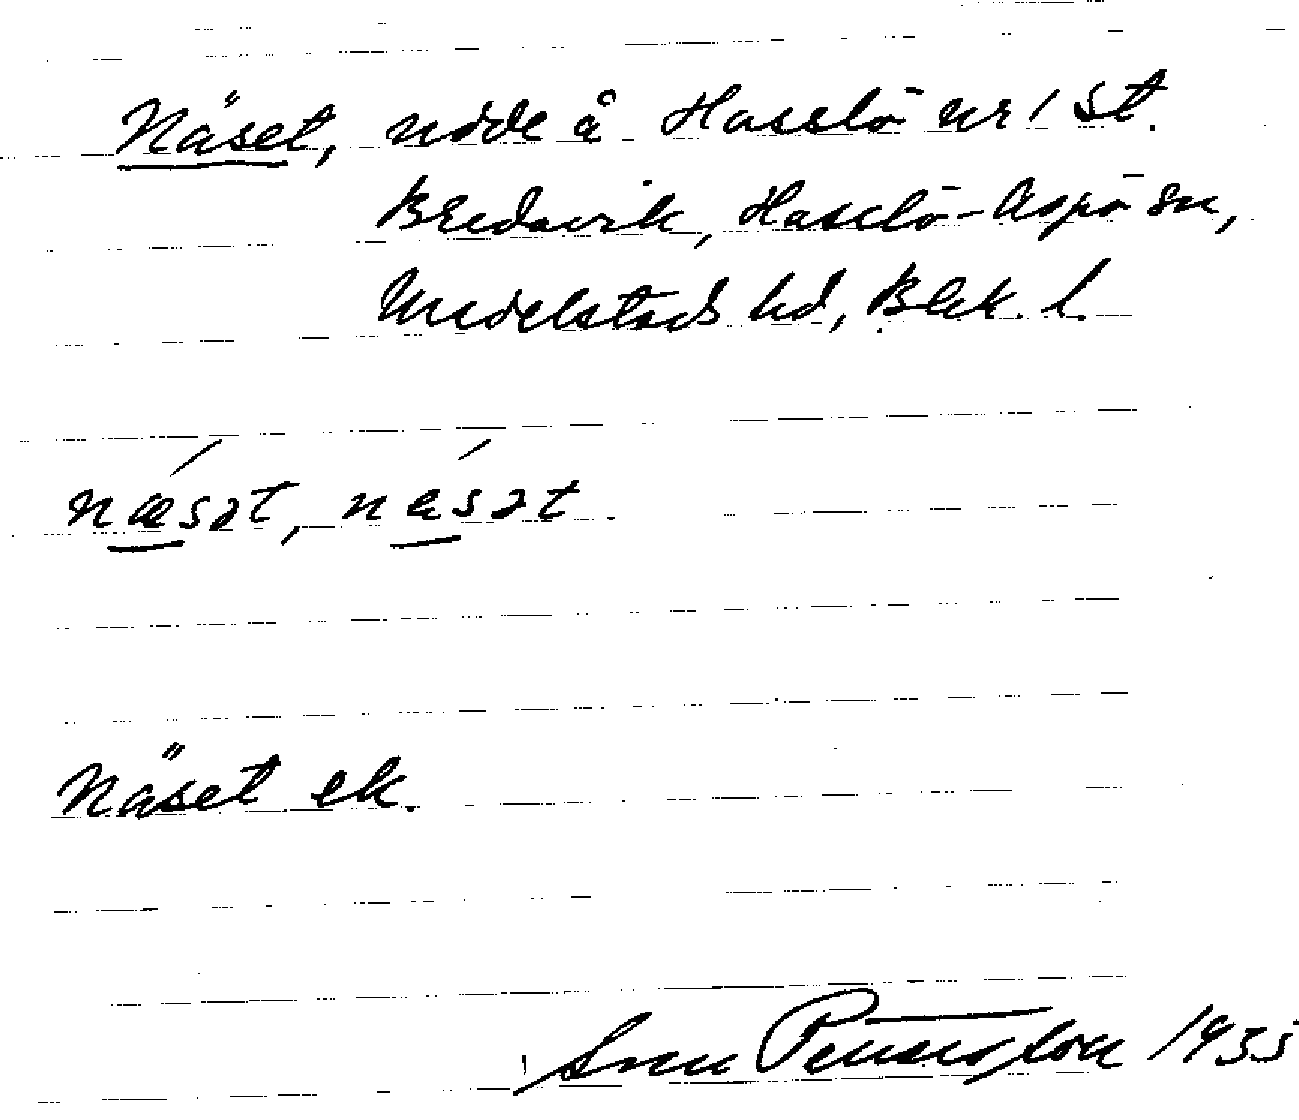 Näset, udde å Hasslö nr 1 St.
Bredavik, Hasslö-Aspö sn,
Medelstads hd, Blek. l.
nǽsət, nǽsət
Näset ek.
1955